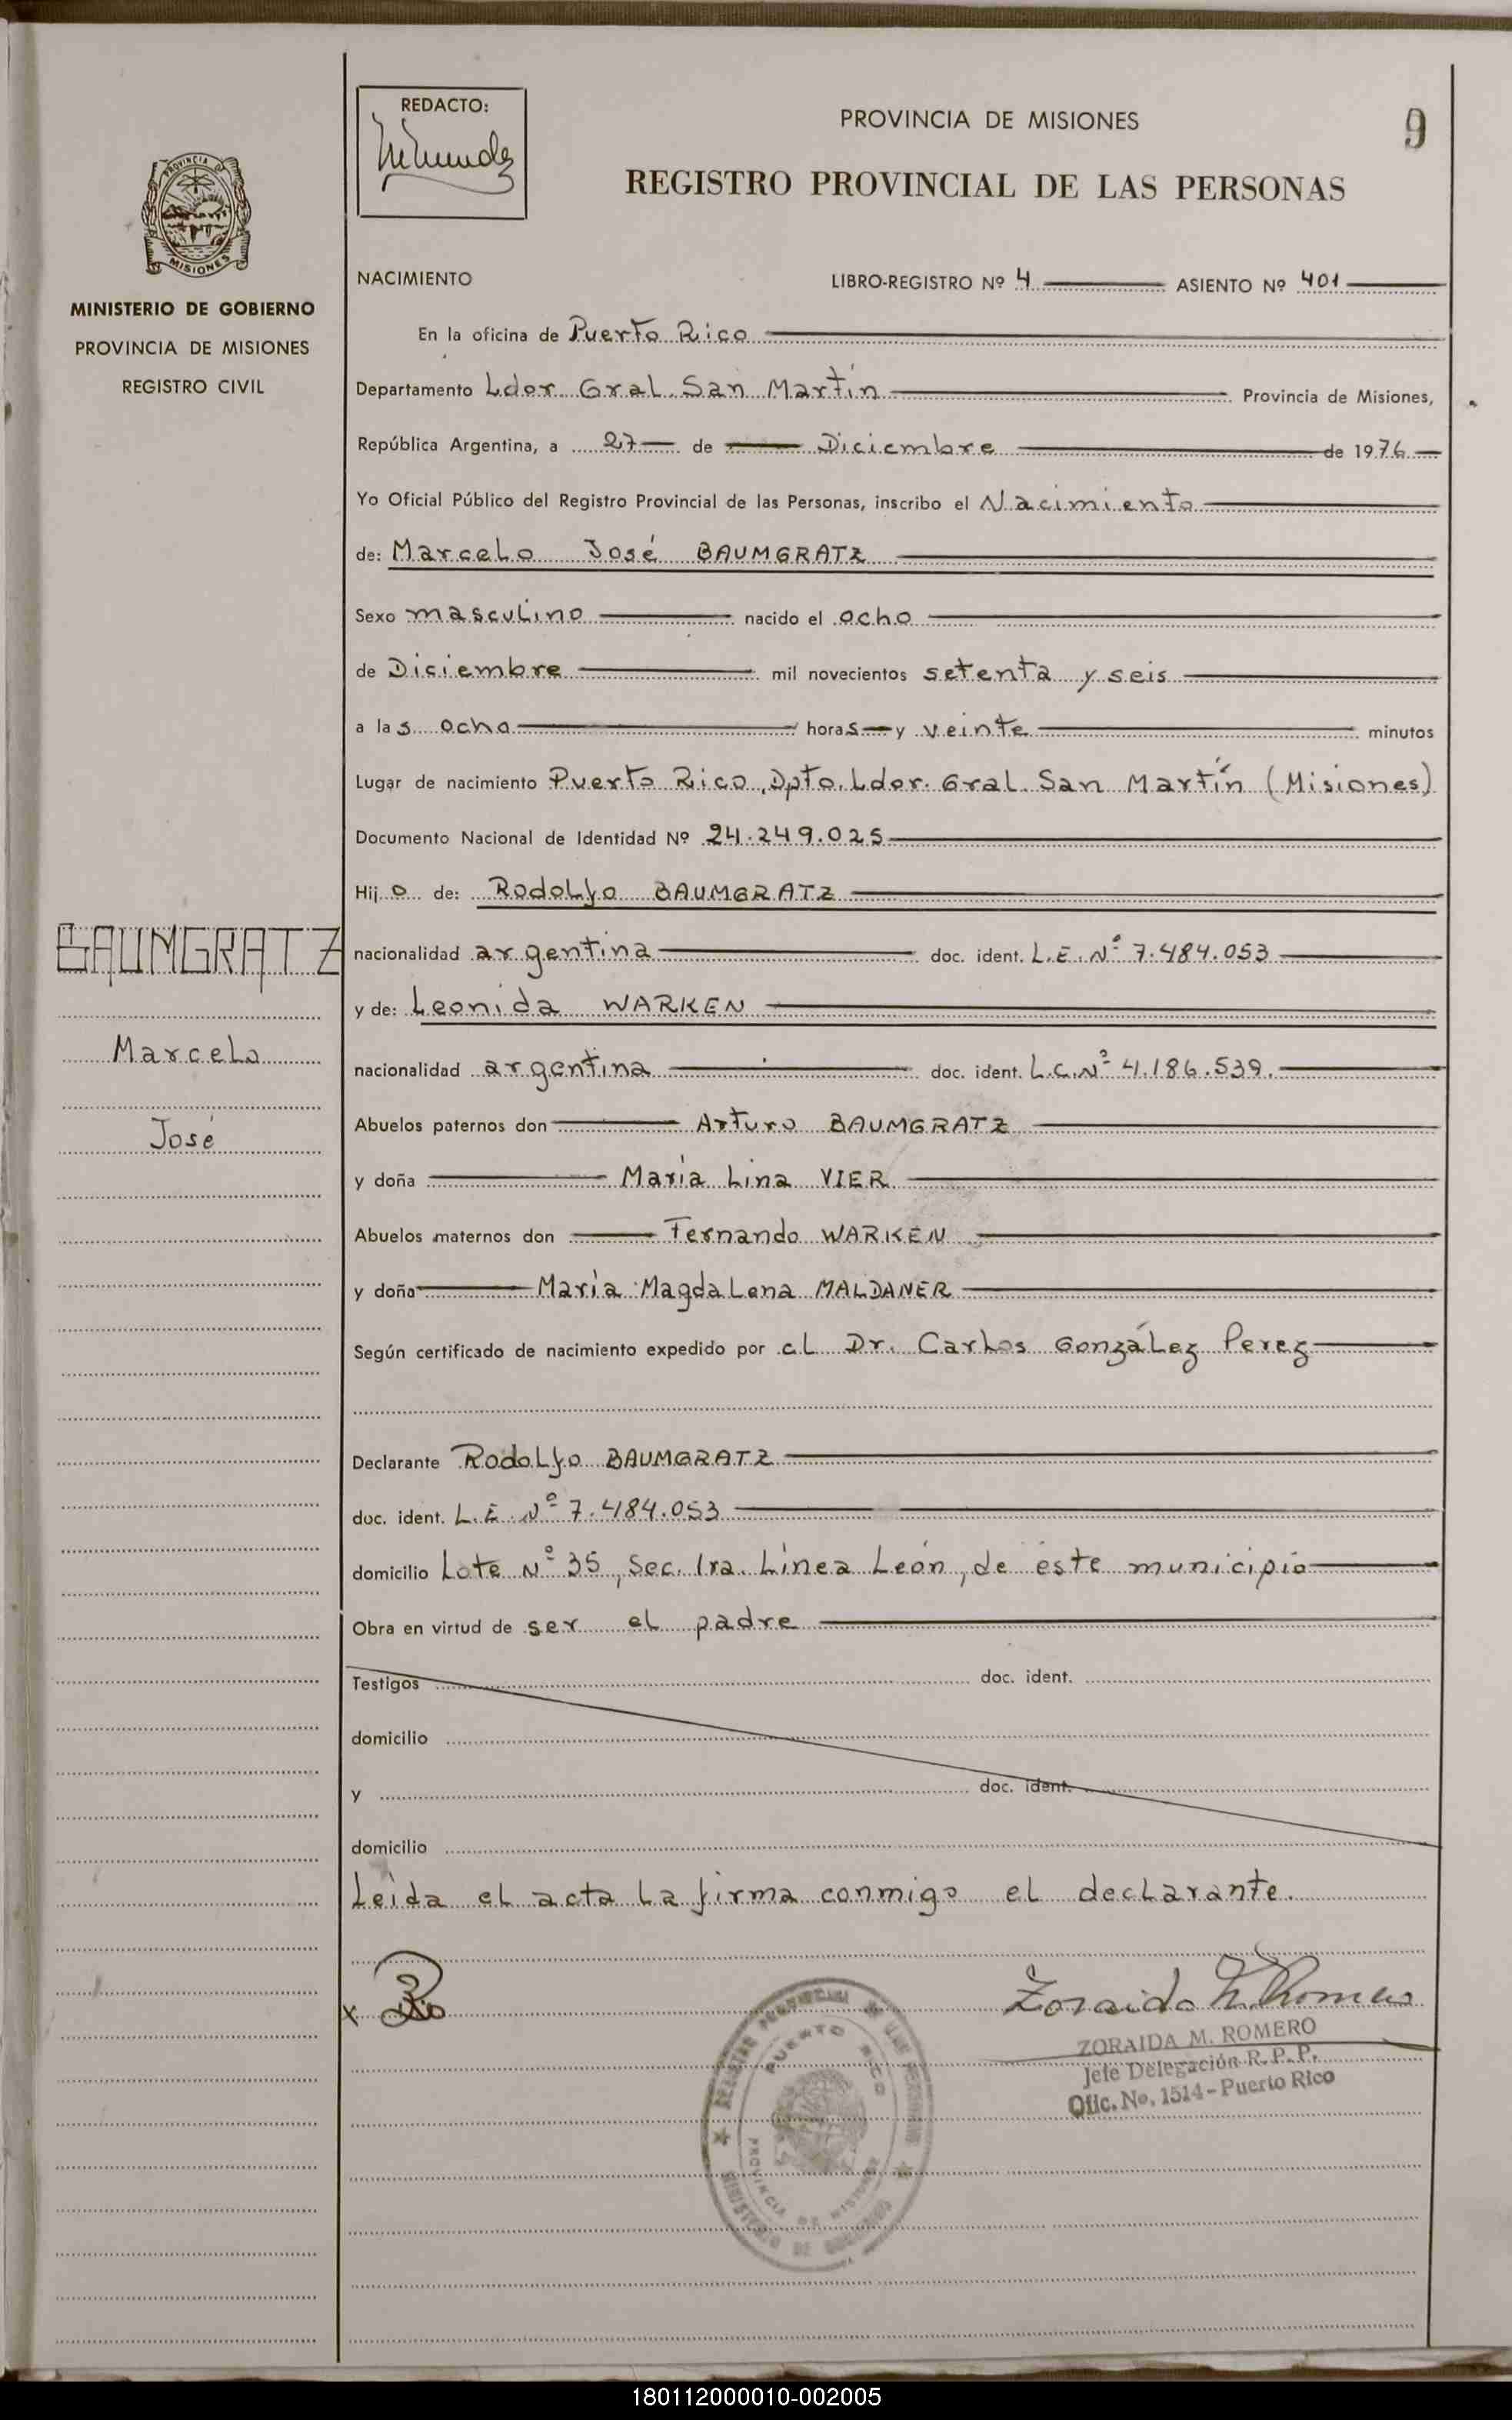 REDACTO:
PROVINCIA DE MISIONES
9
REGISTRO PROVINCIAL DE LAS PERSONAS
PROVINCIA DE
MISIONES
MINISTERIO DE GOBIERNO
PROVINCIA DE MISIONES
REGISTRO CIVIL
NACIMIENTO LIBRO-REGISTRO Nº 4 ASIENTO Nº 401
En la oficina de Puerto Rico
Departamento Ldor Gral. San Martín Provincia de Misiones,
República Argentina, a 27 de Diciembre de 1976
Yo Oficial Público del Registro Provincial de las Personas, inscribo el Nacimiento
de: Marcelo José BAUMGRATZ
Sexo masculino nacido el ocho
de Diciembre mil novecientos setenta y seis
a las ocho horas y veinte minutos
Lugar de nacimiento Puerto Rico, Dpto. Ldor. Gral. San Martín (Misiones)
Documento Nacional de Identidad Nº 24.249.025
Hijo de: Rodolfo BAUMGRATZ
BAUMGRATZ
nacionalidad argentina doc. ident. L.E. Nº 7.484.053
y de: Leonida WARKEN
Marcelo
nacionalidad argentina doc. ident. L.C. Nº 4.186.539.
José
Abuelos paternos don Arturo BAUMGRATZ
y doña María Lina VIER
Abuelos maternos don Fernando WARKEN
y doña María Magdalena MALDANER
Según certificado de nacimiento expedido por el Dr. Carlos González Perez
Declarante Rodolfo BAUMGRATZ
doc. ident. L.E. Nº 7.484.053
domicilio Lote Nº 35, Sec. 1ra. Línea León, de éste municipio
Obra en virtud de ser el padre
Testigos doc. ident.
domicilio
y doc. ident.
domicilio
Leída el acta la firma conmigo el declarante.
x
Zoraida M. Romero
ZORAIDA M. ROMERO
Jefe Delegación R. P. P.
Ofic. No. 1514 - Puerto Rico
REGISTRO PROVINCIAL DE LAS PERSONAS
PUERTO RICO
PROVINCIA DE MISIONES
MINISTERIO DE GOBIERNO
180112000010-002005